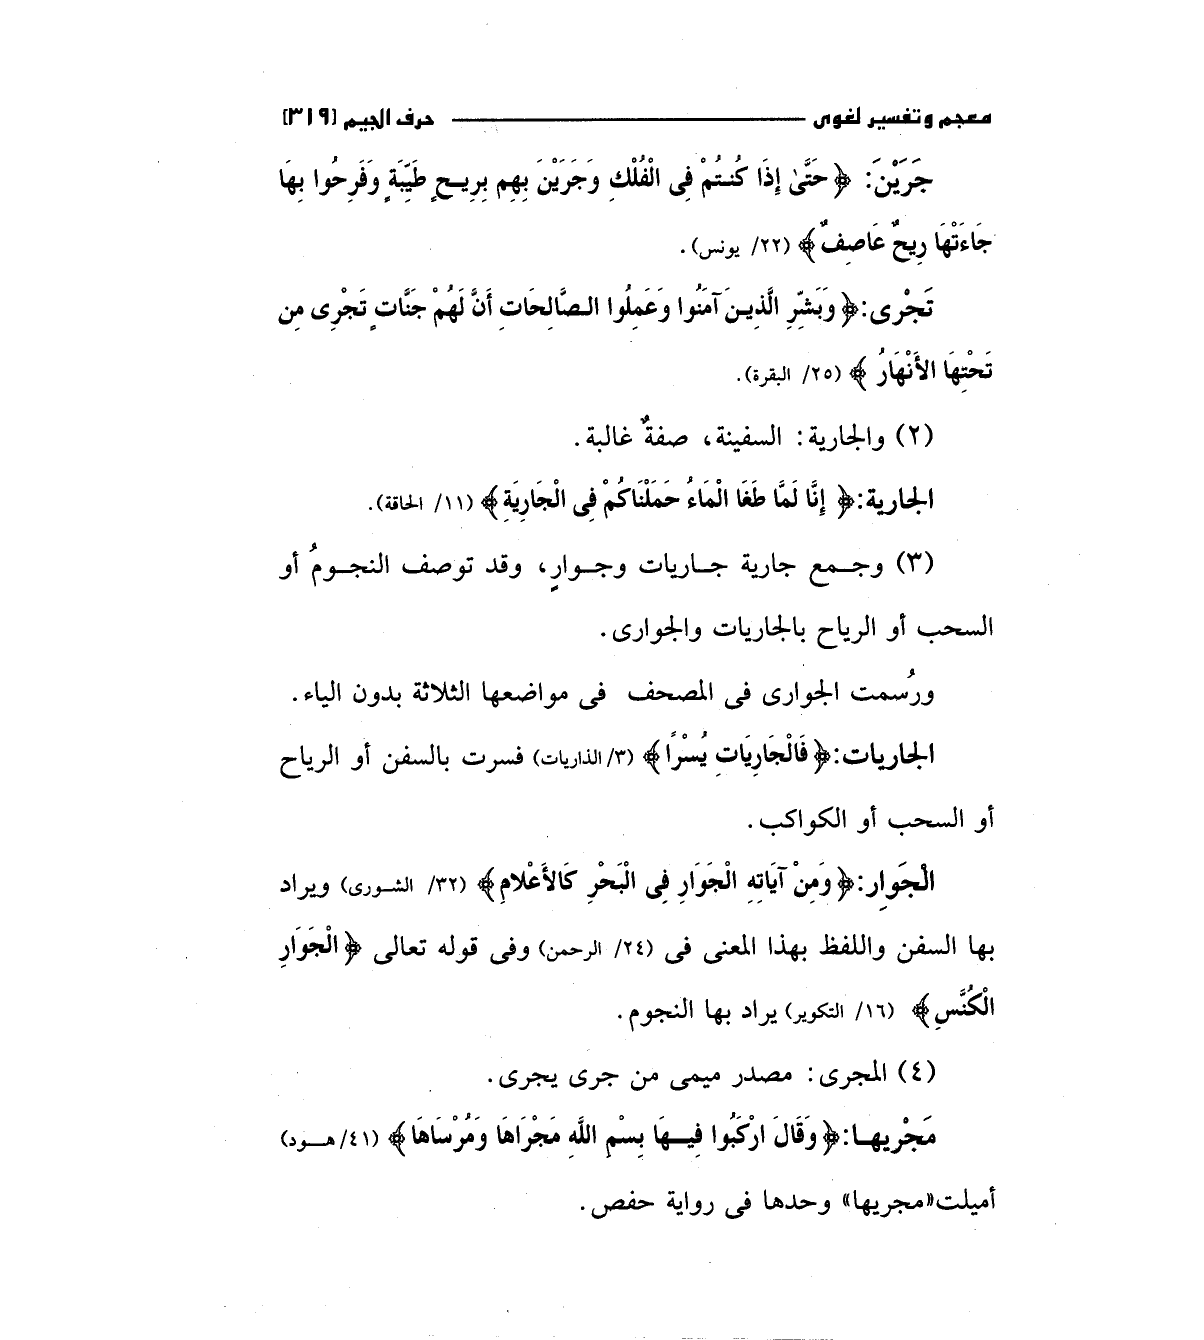 معجم وتفسير لغوى حرف الجيم [٣١٩]
جَرَيْنَ: ﴿حَتَّىٰ إِذَا كُنتُمْ فِى الْفُلْكِ وَجَرَيْنَ بِهِم بِرِيحٍ طَيِّبَةٍ وَفَرِحُوا بِهَا
جَاءَتْهَا رِيحٌ عَاصِفٌ﴾ (٢٢/ يونس).
تَجْرِى:﴿وَبَشِّرِ الَّذِينَ آمَنُوا وَعَمِلُوا الصَّالِحَاتِ أَنَّ لَهُمْ جَنَّاتٍ تَجْرِى مِن
تَحْتِهَا الأَنْهَارُ﴾ (٢٥/ البقرة).
(٢) والجارية: السفينة، صفةٌ غالبة.
الجارية:﴿إِنَّا لَمَّا طَغَا الْمَاءُ حَمَلْنَاكُمْ فِى الْجَارِيَةِ﴾ (١١/ الحاقة).
(٣) وجمع جارية جاريات وجوارٍ، وقد توصف النجومُ أو
السحب أو الرياح بالجاريات والجوارى.
ورُسمت الجوارى فى المصحف فى مواضعها الثلاثة بدون الياء.
الجاريات:﴿فَالْجَارِيَاتِ يُسْرًا﴾ (٣/ الذاريات) فسرت بالسفن أو الرياح
أو السحب أو الكواكب.
الْجَوارِ:﴿وَمِنْ آيَاتِهِ الْجَوَارِ فِى الْبَحْرِ كَالأَعْلامِ﴾ (٣٢/ الشورى) ويراد
بها السفن واللفظ بهذا المعنى فى (٢٤/ الرحمن) وفى قوله تعالى ﴿الْجَوَارِ
الْكُنَّسِ﴾ (١٦/ التكوير) يراد بها النجوم.
(٤) المجرى: مصدر ميمى من جرى يجرى.
مَجْريها:﴿وَقَالَ ارْكَبُوا فِيهَا بِسْمِ اللَّهِ مَجْرَاهَا وَمُرْسَاهَا﴾ (٤١/ هود)
أميلت«مجريها» وحدها فى رواية حفص.